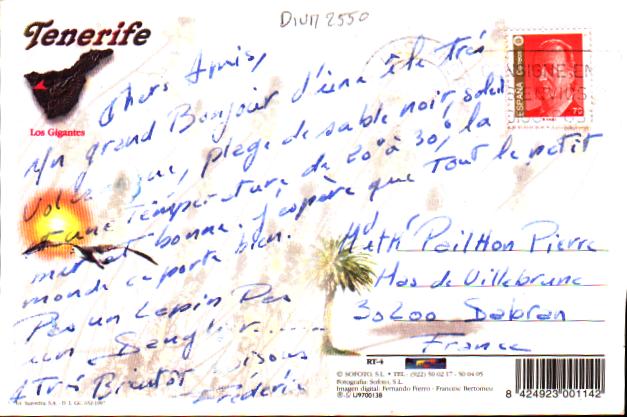 DIVN 2550
Tenerife
Los Gigantes
Chers Amis,
Un grand Bonjour d'une île très
volcanique, plage de sable noir, soleil
et une température de 20° à 30°, la
mer est bonne. J'espère que Tout le petit
monde ce porte bien.
Pas un Lapin Pas
un Senglier......
A Très Bientôt Bisous
Frédéric
ESPAÑA Correos
70
Pailhon Pierre
Mas de Villebrune
30200 Sabran
France
RT-4
© SOFOTO, S.L. • TEL. (922) 50 02 17 - 50 04 05
Fotografía: Sofoto, S.L.
Imagen digital: Fernando Fierro - Francesc Bertomeu
U9700138
8 424923 001142